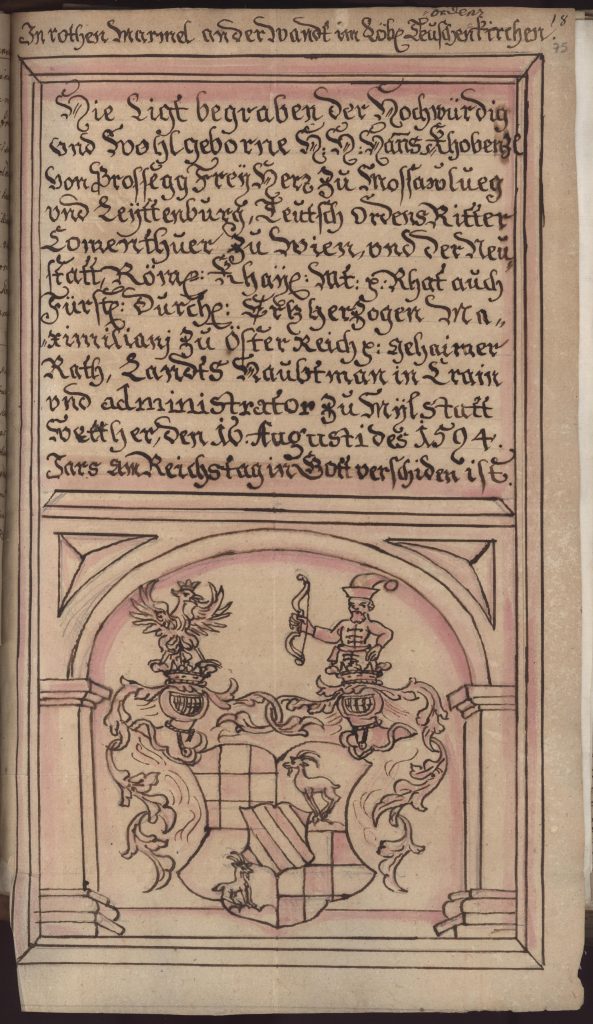 ordens
18
In rothen Marmel an der wandt im Löbx Teüschenkirchen.
75
Hie Ligt begraben der Hochwürdig
vnd Wohlgeborne H: H: Hanns Khobenzl
von Prossegg FreyHerr zu Mossawlueg
vnd Leÿttenburg, Teutsch Ordens Ritter
Comenthuer zu Wien, vnd der Neu„
statt, Röm: Khaÿ: Mt: x: Rhat auch
Fürst: Durch: Ertzherzogen Ma„
„ximiliani zu ÖsterReich x: gehaimer
Rath, Landts Haubtman in Crain
vnd administrator zu Mÿlstatt
Wellher, den 16. Augusti des 1594.
Jars am Reichstag in Gott verschiden ist.